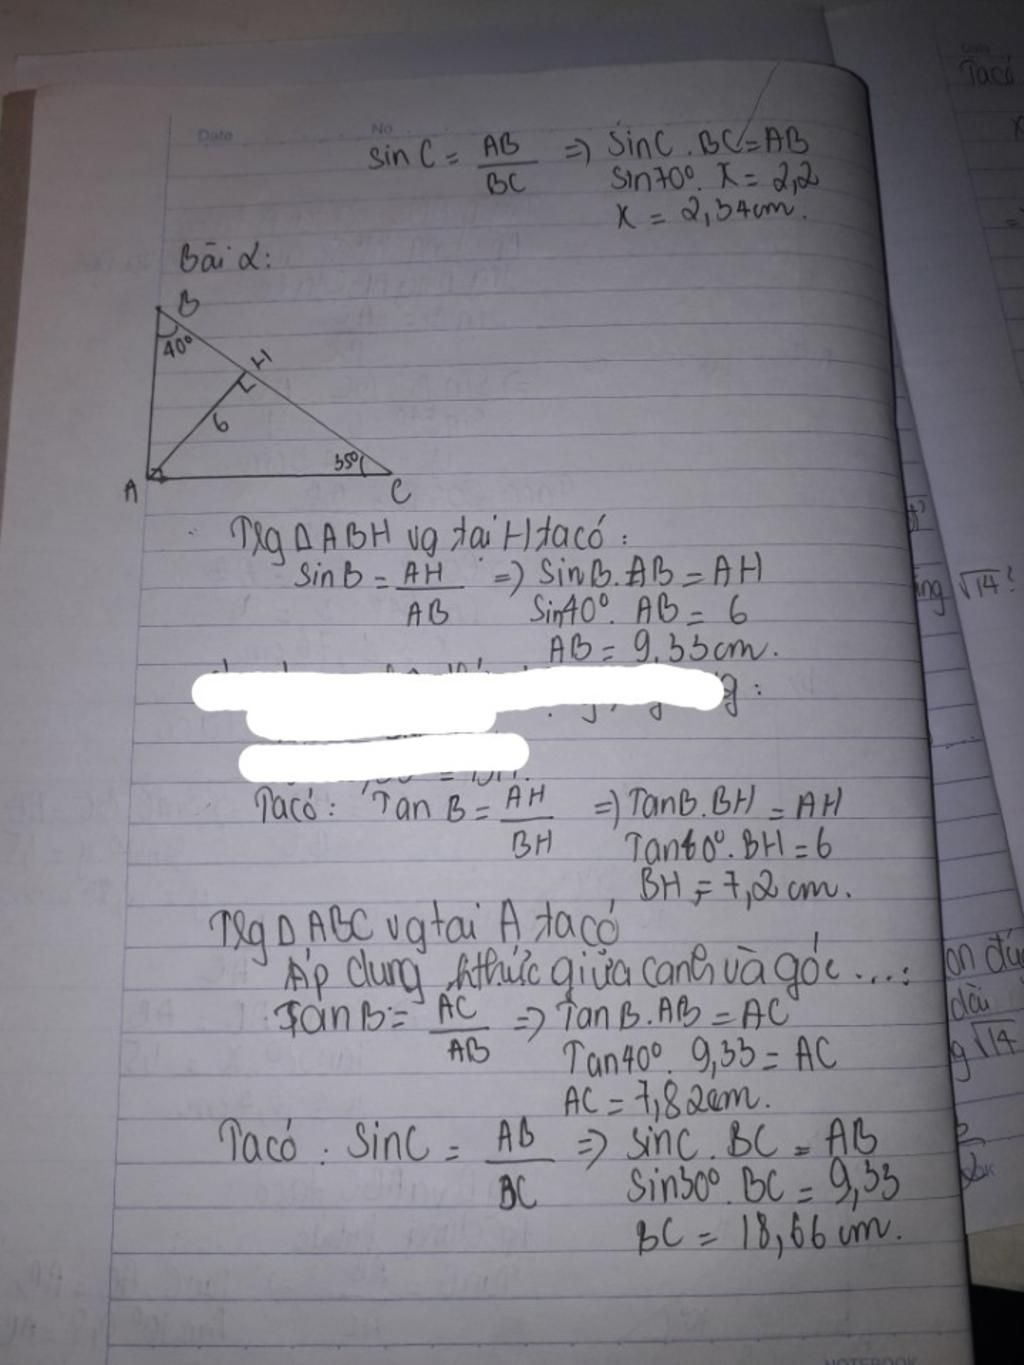 Date No
Sin C = AB/BC => SinC . BC = AB
Sin70°. X = 2,2
X = 2,34cm.
Bài 2:
B
40°
H
6
35°
A
C
Tlg Δ ABH vg tại H ta có :
Sin B = AH/AB => SinB. AB = AH
Sin40°. AB = 6
AB = 9,33cm.
g :
Ta có : Tan B = AH/BH => TanB. BH = AH
Tan40°. BH = 6
BH = 7,2 cm.
Tlg Δ ABC vg tại A ta có
Áp dụng hthức giữa cạnh và góc ....:
Tan B = AC/AB => TanB. AB = AC
Tan40°. 9,33 = AC
AC = 7,82cm.
Ta có : SinC = AB/BC => SinC . BC = AB
Sin30°. BC = 9,33
BC = 18,66 cm.
Date
Ta có
√14?
dài
√14
NOTEBOOK